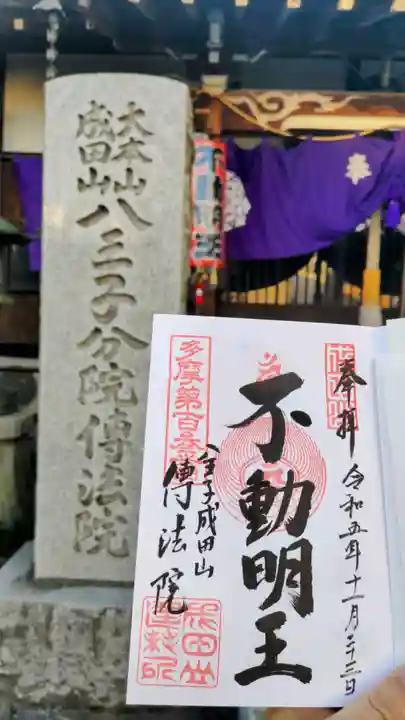 大本山
成田山
八王子分院傳法院
不動明王
奉拝
令和五年十一月二十三日
不動明王
多摩第百
八王子成田山
傳法院